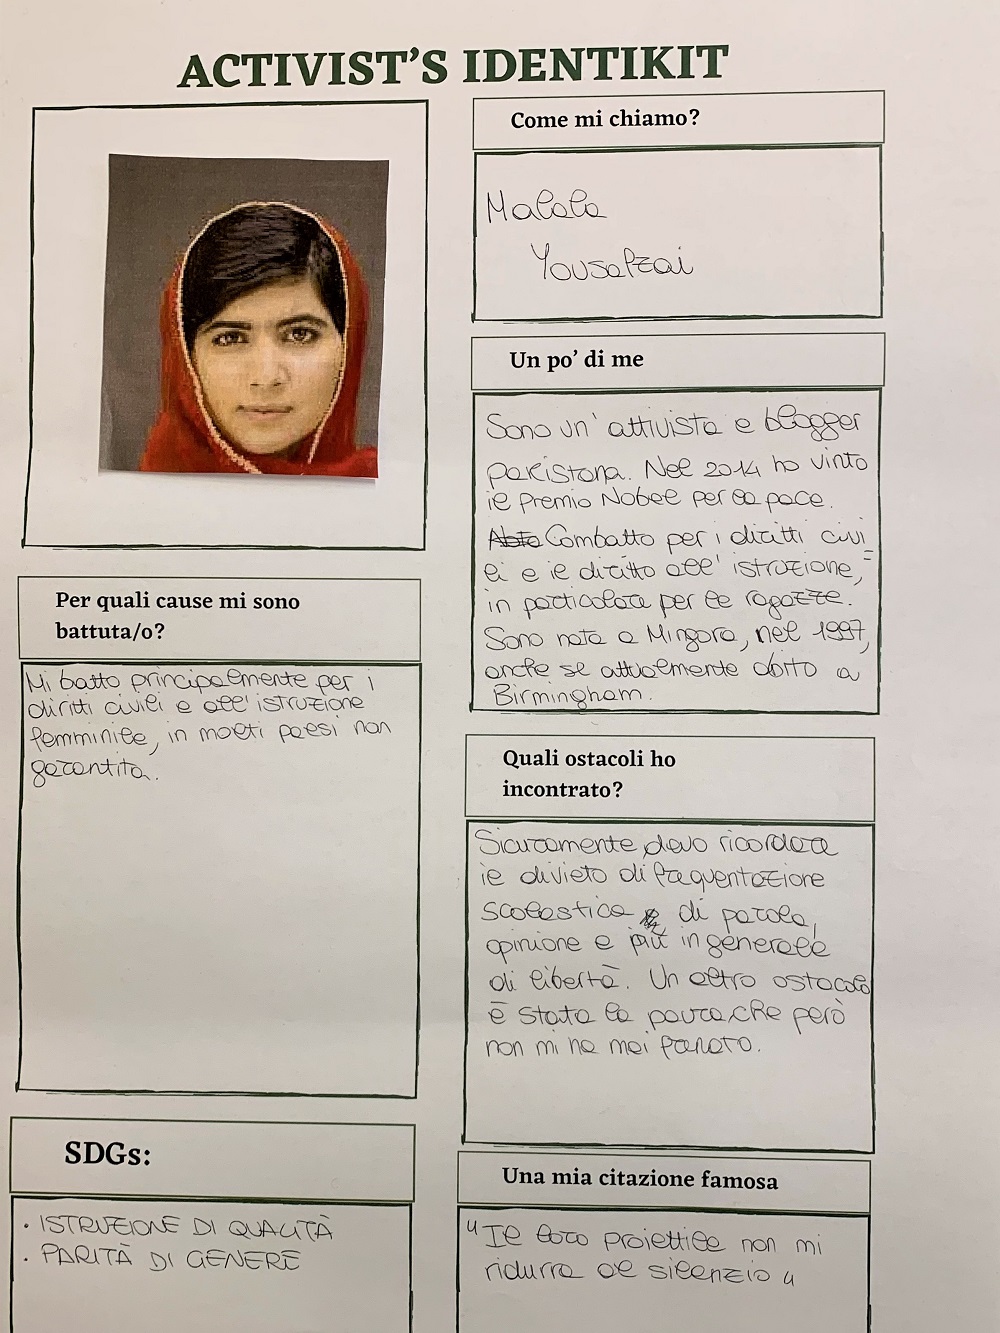 ACTIVIST'S IDENTIKIT
Come mi chiamo?
Malala
Yousafzai
Un po' di me
Sono un' attivista e blogger
pakistana. Nel 2014 ho vinto
il premio Nobel per la pace.
Nata Combatto per i diritti civi
li e il diritto all' istruzione,
in particolare per le ragazze.
Sono nata a Mingora, nel 1997,
anche se attualmente abito a
Birmingham.
Per quali cause mi sono
battuta/o?
Mi batto principalmente per i
diritti civili e all'istruzione
femminile, in molti paesi non
garantita.
Quali ostacoli ho
incontrato?
Sicuramente devo ricordare
il divieto di frequentazione
scolastica di parola,
opinione e più in generale
di libertà. Un altro ostacolo
è stata la paura, che però
non mi ha mai fermato.
SDGs:
· ISTRUZIONE DI QUALITÀ
· PARITÀ DI GENERE
Una mia citazione famosa
"Il loro proiettile non mi
ridurra al silenzio"